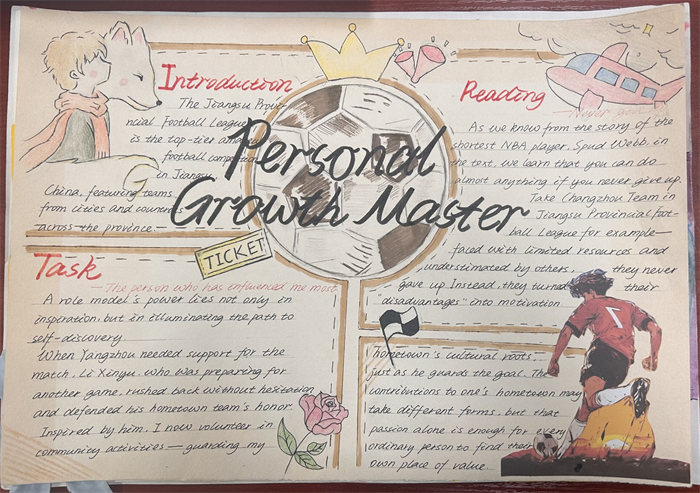 Personal
Growth Master
Introduction
The Jiangsu Provin-
cial Football League
is the top-tier ama
football competi
in Jiangsu,
China, featuring teams
from cities and countries
across the province.
TICKET
Reading
— Never
As we know from the story of the
shortest NBA player, Spud Webb, in
the text, we learn that you can do
almost anything if you never give up.
Take Changzhou Team in
Jiangsu Provincial Foot-
ball League for example—
faced with limited resources and
understimated by others, they never
gave up. Instead, they turned their
"disadvantages" into motivation.
Task
— The person who has enfluenced me most
A role model's power lies not only in
inspiration, but in illuminating the path to
self-discovery.
When Yangzhou needed support for the
match, Li Xinyu, who was preparing for
another game, rushed back without hesitation
and defended his hometown team's honor.
Inspired by him, I now volunteer in
community activities — guarding my
hometown's cultural roots,
just as he guards the goal. The
contributions to one's hometown may
take different forms, but that
passion alone is enough for every
ordinary person to find their
own place of value.
7